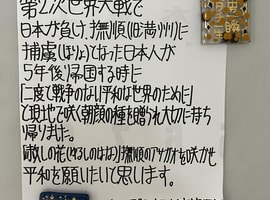 第2次世界大戦で
日本が負け、撫順(旧満州)に
捕虜(ほりょ)となった日本人が
5年後帰国する時に
「二度と戦争のない平和な世界のために」
と現地で咲く朝顔の種を贈られ大切に持ち
帰りました。
「赦しの花(ゆるしのはな)」撫順のアサガオを咲かせ
平和を願いたいと思います。